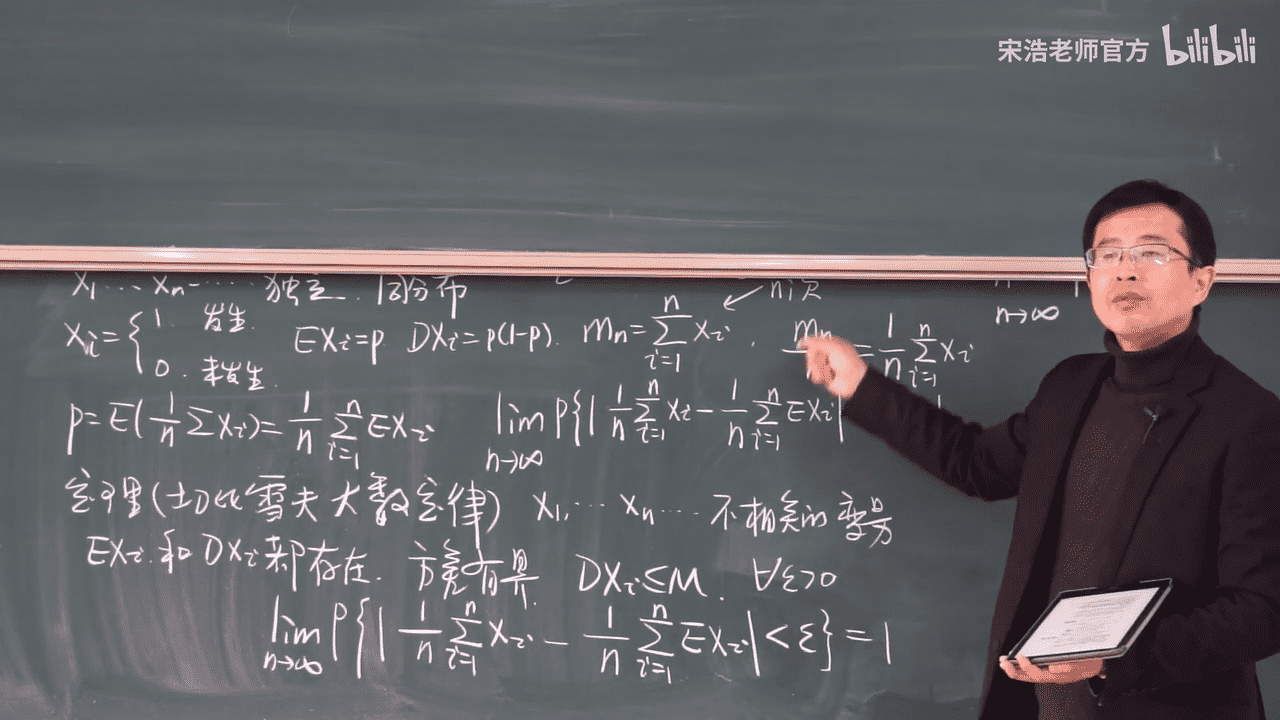 宋浩老师官方 bilibili
X₁ … Xₙ … 独立. 同分布 n次
Xᵢ = { 1. 发生. 0. 未发生. EXᵢ=p DXᵢ=p(1-p). mₙ = ∑ᵢ₌₁ⁿ Xᵢ . mₙ = 1/n ∑ᵢ₌₁ⁿ Xᵢ n→∞
p = E(1/n ∑Xᵢ) = 1/n ∑ᵢ₌₁ⁿ EXᵢ lim n→∞ P{| 1/n ∑ᵢ₌₁ⁿ Xᵢ - 1/n ∑ᵢ₌₁ⁿ EXᵢ |
定理(切比雪夫大数定律) X₁, … Xₙ … 不相关的变量
EXᵢ 和 DXᵢ 都存在. 方差有界. DXᵢ ≤ M. ∀ε>0
lim n→∞ P{| 1/n ∑ᵢ₌₁ⁿ Xᵢ - 1/n ∑ᵢ₌₁ⁿ EXᵢ | < ε} = 1